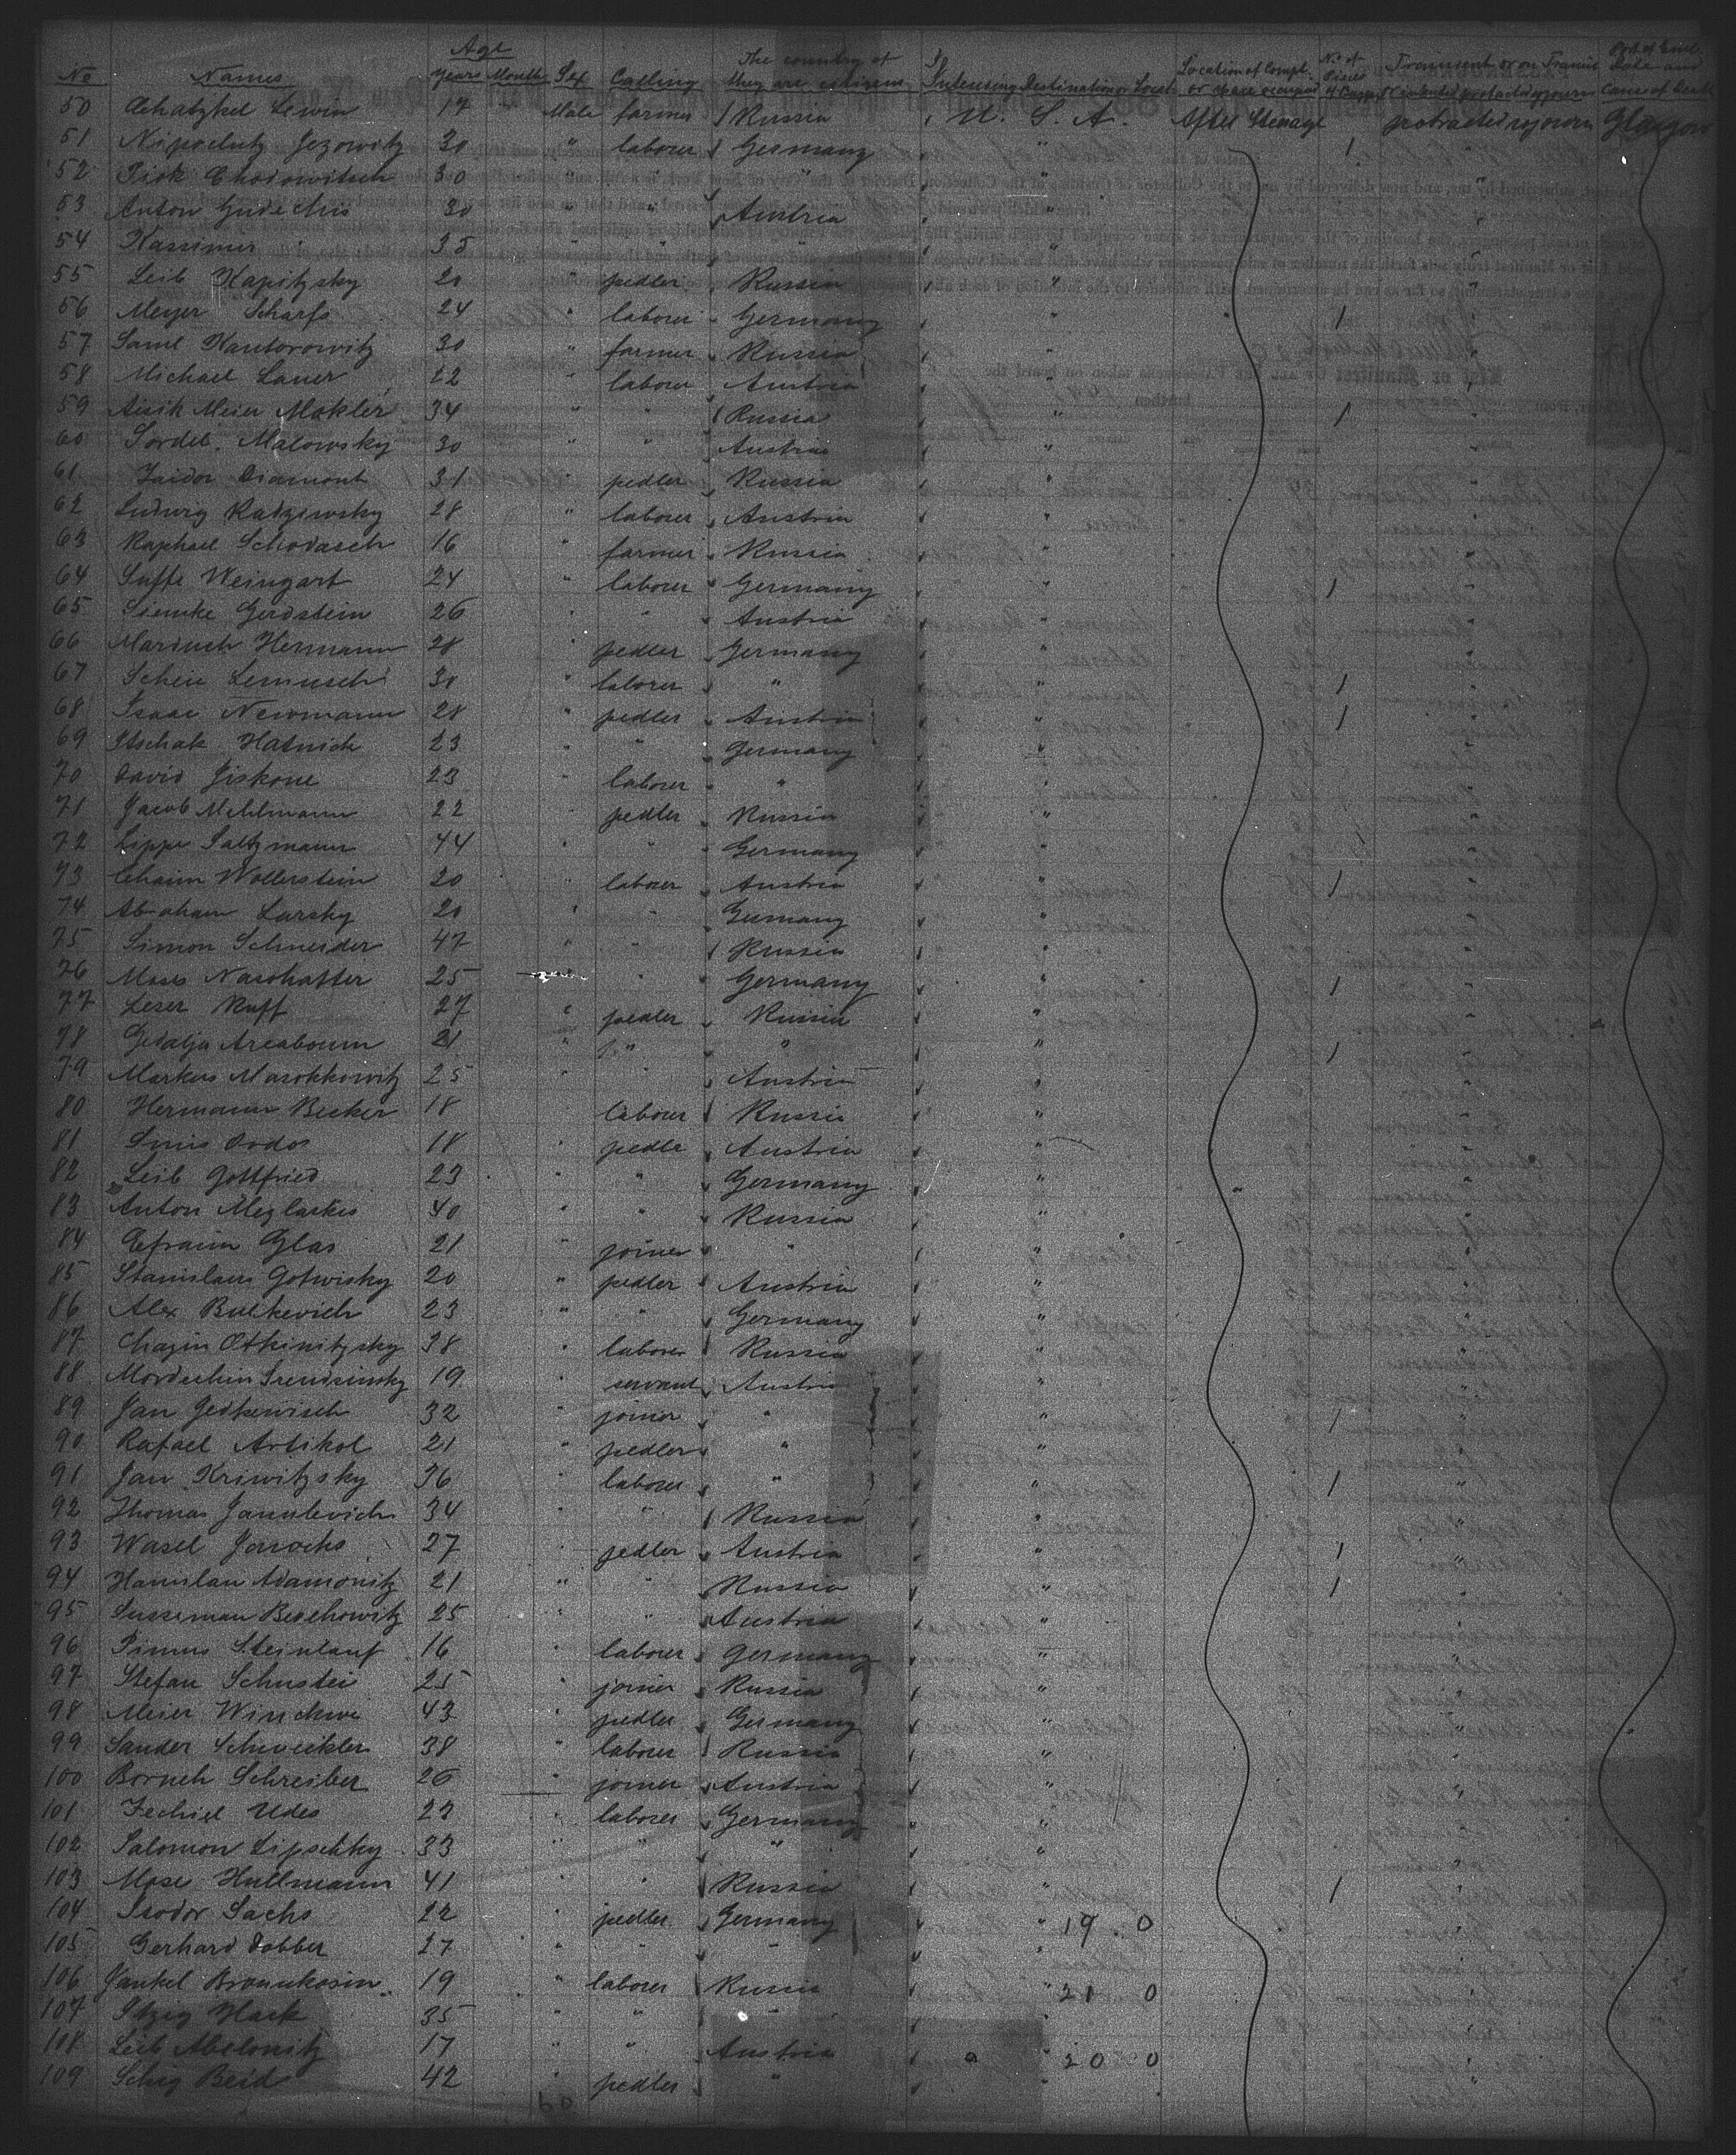 No Names Age Years Months Sex Calling The country of which they are citizens Intending Destination or Locat. Location of Compt. or space occupied No. of Pieces of Bagg. Transient or in Transit or intended protracted sojourn Date and Cause of Death
50 Chatzkel Lewin 17 Male farmer Russia U. S. A. After Steerage protracted sojourn Glasgow
51 Jezowitz 30 " laborer Germany " 1 "
52 Chodowitsch 30 " " " " "
53 Anton 30 " " Austria " "
54 Kassimer 35 " " " " "
55 Leib Kapitzsky 20 " pedler Russia " "
56 Meyer Scharfs 24 " laborer Germany " 1 "
57 Saml Kantorowitz 30 " farmer Russia " "
58 Michael Lauer 22 " laborer Austria " "
59 Aisik Meier Makler 34 " " Russia " 1 "
60 Sordel Malowsky 30 " " Austria " "
61 Isidor Diamont 31 " pedler Russia " "
62 Ludwig Radziwsky 28 " laborer Austria " "
63 Raphael Schodasch 16 " farmer Russia " "
64 Weingart 24 " laborer Germany " 1 "
65 Slemke Gerdstein 26 " " Austria " "
66 Marduch Hermann 28 " pedler Germany " "
67 Lemusch 30 " laborer " " 1 "
68 Isaac Newmann 28 " pedler Austria " 1 "
69 Itschak Hatnick 23 " " Germany " "
70 David Jiskone 23 " laborer " " "
71 Jacob Mehlmann 22 " pedler Russia " "
72 Lippe Saltzmann 44 " " Germany " "
73 Chaim Wollerstein 20 " laborer Austria " 1 "
74 Abraham Larsky 20 " " Germany " "
75 Simon Schneider 47 " " Russia " "
76 Moses Naschatter 25 " Germany " 1 "
77 Leser Ruff 27 " pedler Russia " "
78 Gedalja Areaboum 21 " " " " 1 "
79 Markus Marokkowitz 25 " " Austria " "
80 Hermann Becker 18 " laborer Russia " "
81 18 " pedler Austria " "
82 Leib Gottfried 23 " " Germany " "
83 Anton Meglarkis 40 " " Russia " "
84 Efraim Glas 21 " joiner " " "
85 Stanislaus Gotwisky 20 " pedler Austria " "
86 Alex Bulkevich 23 " " Germany " "
87 Chagin Otkinitzsky 38 " laborer Russia " "
88 19 " servant Austria " "
89 Jan Gedkewisch 32 " joiner " " 1 "
90 Rafael Artikol 21 " pedler " " "
91 Jan Kriwitzsky 36 " laborer " " 1 "
92 Thomas Janulevich 34 " " Russia " "
93 Wasel 27 " pedler Austria " 1 "
94 Adamowitz 21 " " Russia " 1 "
95 Susseman Berchowitz 25 " " Austria " "
96 Pinnus Steinlauf 16 " laborer Germany " "
97 Stefan Schuster 25 " joiner Russia " "
98 Meier 43 " pedler Germany " "
99 Sander Schweckler 38 " laborer Russia " "
100 Boruch Schreiber 26 " joiner Austria " "
101 Jechiel Udes 23 " laborer Germany " "
102 Salomon Lipschky 33 " " " " "
103 Mose Hullmann 41 " " Russia " 1 "
104 Isodor Sachs 22 " pedler Germany " 19 0 "
105 Gerhard Dobber 27 " " " " "
106 Jankel Bronukosin 19 " laborer Russia " 21 0 "
107 Itzig Hark 35 " " " " "
108 Leib Abelowitz 17 " " Austria " 20 0 "
109 Schig Beid 42 " pedler " " "
60